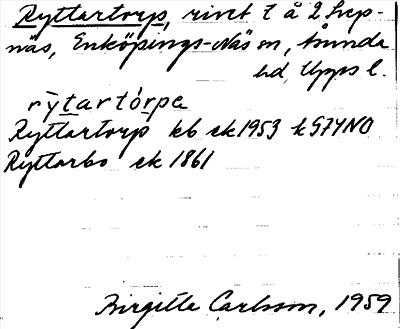 Ryttartorp, rivet t å 2 Skep-
näs, Enköpings-Näs sn, Åsunda
hd, Upps l.
rỳtartórpe
Ryttartorp kb ek 1953 k G7YNO
Ryttarbo ek 1861
Birgitta Carlsson, 1959